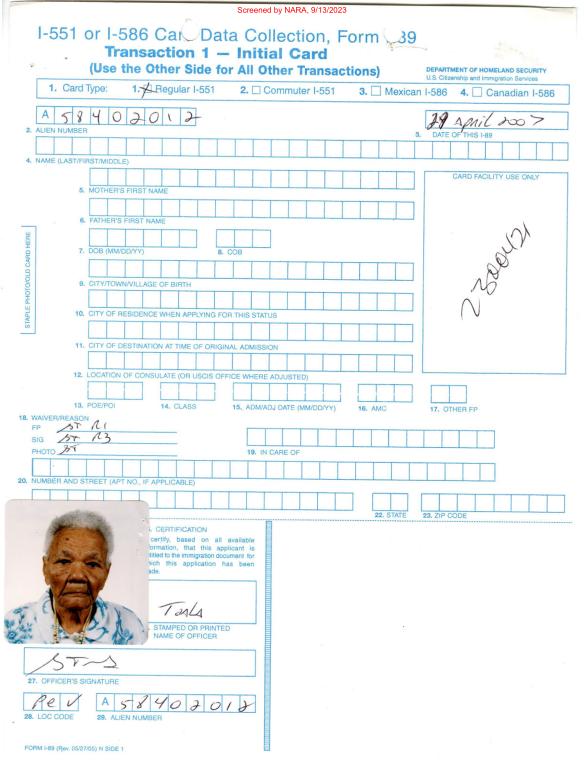 Screened by NARA, 9/13/2023
I-551 or I-586 Car Data Collection, Form 89
Transaction 1 — Initial Card
(Use the Other Side for All Other Transactions)
DEPARTMENT OF HOMELAND SECURITY
U.S. Citizenship and Immigration Services
1. Card Type: 1. Regular I-551 2. Commuter I-551 3. Mexican I-586 4. Canadian I-586
A 58402012
29 April 2007
2. ALIEN NUMBER
3. DATE OF THIS I-89
4. NAME (LAST/FIRST/MIDDLE)
CARD FACILITY USE ONLY
5. MOTHER'S FIRST NAME
6. FATHER'S FIRST NAME
2300421
7. DOB (MM/DD/YY) 8. COB
STAPLE PHOTO/OLD CARD HERE
9. CITY/TOWN/VILLAGE OF BIRTH
10. CITY OF RESIDENCE WHEN APPLYING FOR THIS STATUS
11. CITY OF DESTINATION AT TIME OF ORIGINAL ADMISSION
12. LOCATION OF CONSULATE (OR USCIS OFFICE WHERE ADJUSTED)
13. POE/POI 14. CLASS 15. ADM/ADJ DATE (MM/DD/YY) 16. AMC 17. OTHER FP
18. WAIVER/REASON
FP ST R1
SIG ST R3
PHOTO ST
19. IN CARE OF
20. NUMBER AND STREET (APT NO., IF APPLICABLE)
22. STATE 23. ZIP CODE
. CERTIFICATION
certify, based on all available
ormation, that this applicant is
titled to the immigration document for
hich this application has been
ade.
STAMPED OR PRINTED
NAME OF OFFICER
27. OFFICER'S SIGNATURE
A 58402012
28. LOC CODE 29. ALIEN NUMBER
FORM I-89 (Rev. 05/27/05) N SIDE 1